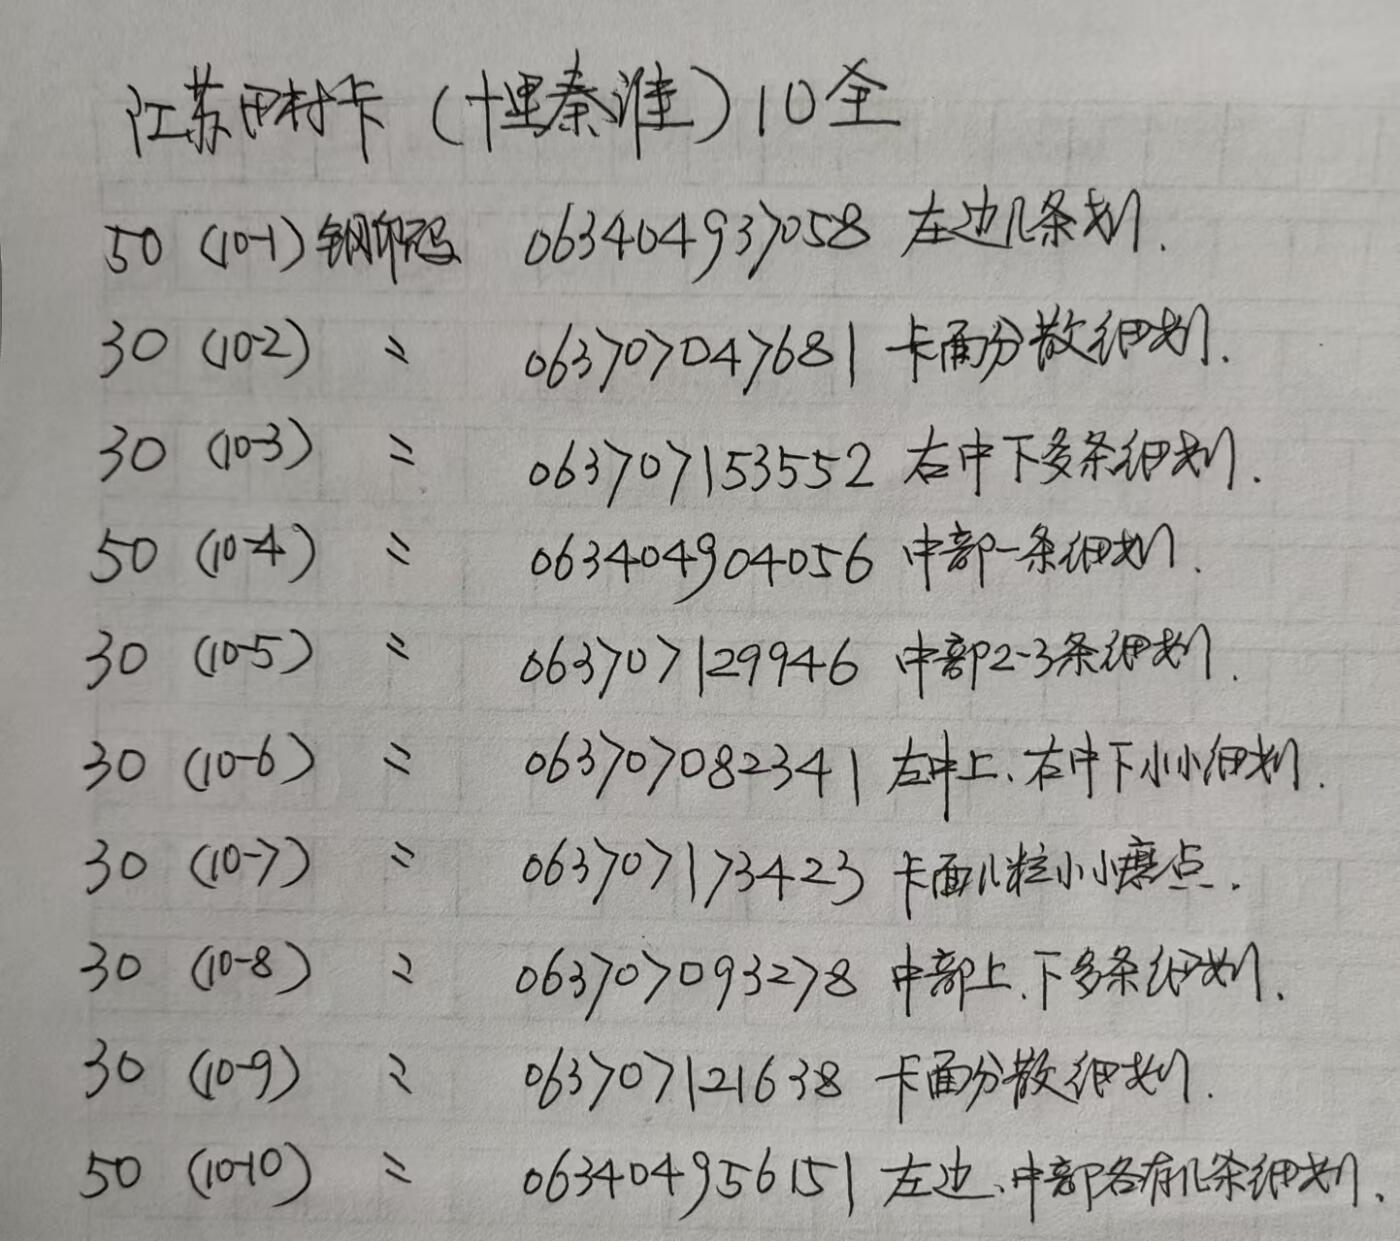 江苏田村卡（十里秦淮）10全
50 (10-1) 钢印码 063404937058 左边几条划.
30 (10-2) 〃 063707047681 卡面分散细划.
30 (10-3) 〃 063707153552 右中下多条细划.
50 (10-4) 〃 063404904056 中部一条细划.
30 (10-5) 〃 063707129946 中部2-3条细划.
30 (10-6) 〃 063707082341 左中上、右中下小小细划.
30 (10-7) 〃 063707173423 卡面几粒小小磨点.
30 (10-8) 〃 063707093278 中部上、下多条细划.
30 (10-9) 〃 063707121638 卡面分散细划.
50 (10-10) 〃 063404956151 左边、中部各有几条细划.